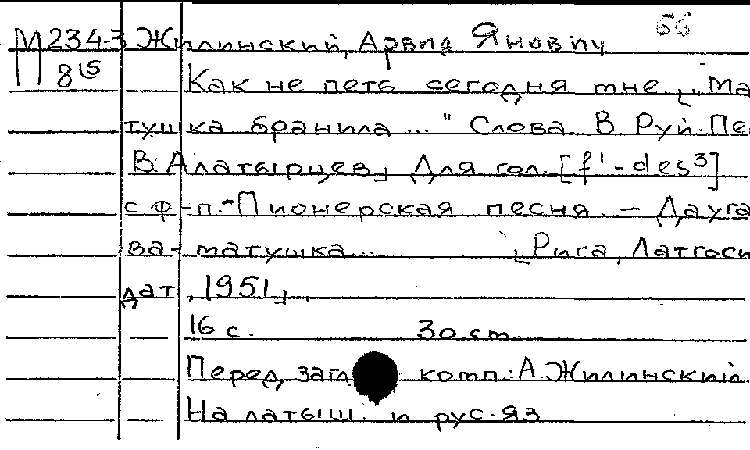 66
М 234-3 Жилинский, Арвид Янович
8(5 Как не петь сегодня мне. „Ма
тушка бранила..." Слова В. Руй. Пе
В. Алатырцев, Для гол. [f¹-des³]
с ф-п.-Пионерская песня. — Дауга
ва-матушка... Рига, Латгоси
дат, 1951,.
16 с. 30 cm
Перед загл комп: А. Жилинский
На латыш. и рус. яз